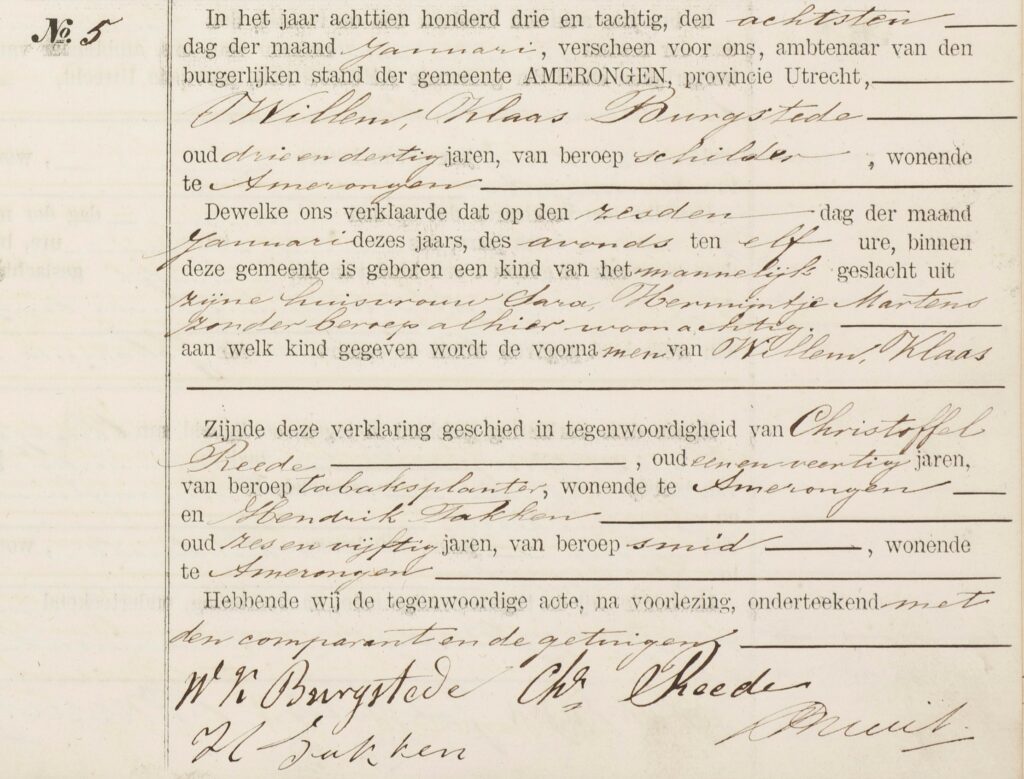 No. 5
In het jaar achttien honderd drie en tachtig, den achtsten
dag der maand Januari, verscheen voor ons, ambtenaar van den
burgerlijken stand der gemeente AMERONGEN, provincie Utrecht,
Willem, Klaas Burgstede
oud drie en dertig jaren, van beroep schilder, wonende
te Amerongen
Dewelke ons verklaarde dat op den zesden dag der maand
Januari dezes jaars, des avonds ten elf ure, binnen
deze gemeente is geboren een kind van het mannelijk geslacht uit
zijne huisvrouw Sara, Hermijntje Martens
zonder beroep alhier woonachtig.
aan welk kind gegeven wordt de voornamen van Willem, Klaas
Zijnde deze verklaring geschied in tegenwoordigheid van Christoffel
Reede, oud een en veertig jaren,
van beroep tabaksplanter, wonende te Amerongen
en Hendrik Takken
oud zes en vijftig jaren, van beroep smid, wonende
te Amerongen
Hebbende wij de tegenwoordige acte, na voorlezing, onderteekend met
den comparant en de getuigen
W K Burgstede Chr Reede
H Takken